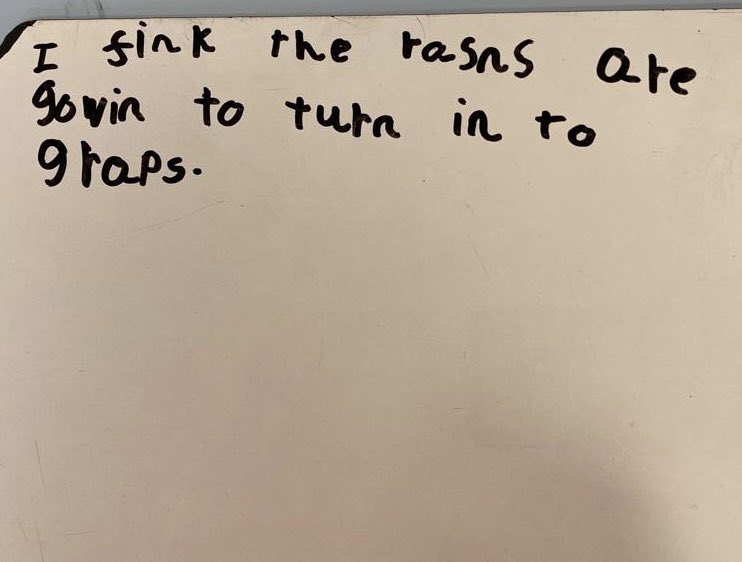 I fink the rasns are
gowin to turn in to
graps.